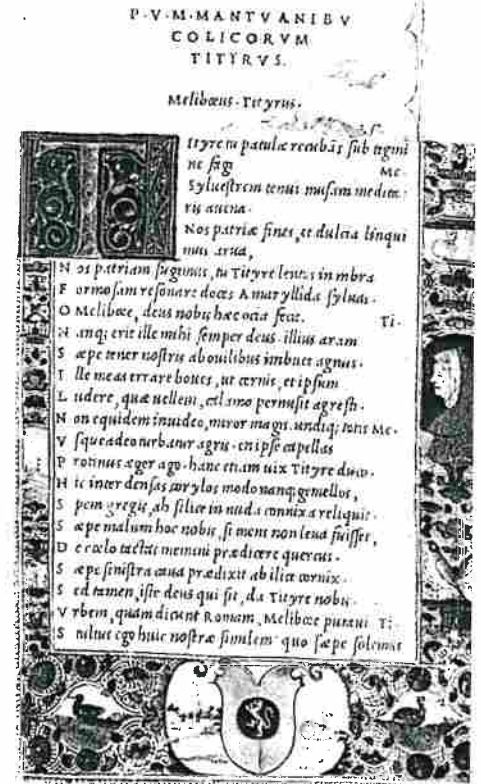 P·V·M·MANTVANIBV
COLICORVM
TITYRVS.
Meliboeus·Tityrus·
Ityre tu patulæ recubãs sub tegmi
ne fagi Me·
Syluestrem tenui musam medita·
ris auena·
Nos patriæ fines, et dulcia linqui
mus arua,
N os patriam fugimus, tu Tityre lentus in mbra
F ormosam resonare doces Amaryllida syluas·
O Meliboee, deus nobis hæc ocia fecit. Ti·
N anq; erit ille mihi semper deus· illius aram
S æpe tener nostris ab ouilibus imbuet agnus·
I lle meas errare boues, ut cernis, et ipsum
L udere, quæ uellem, calamo permisit agresti·
N on equidem inuideo, miror magis· undiq; totis Me·
V sque adeo turbatur agris· en ipse capellas
P rotinus æger ago· hanc etiam uix Tityre duco·
H ic inter densas corylos modo nanq; gemellos,
S pem gregis, ah silice in nuda connixa reliquit·
S æpe malum hoc nobis, si mens non leua fuisset,
D e coelo tactas memini prædicere quercus·
S æpe sinistra caua prædixit ab ilice cornix·
S ed tamen, iste deus qui sit, da Tityre nobis·
V rbem, quam dicunt Romam, Meliboee putaui Ti·
S tultus ego huic nostræ similem· quo sæpe solemus